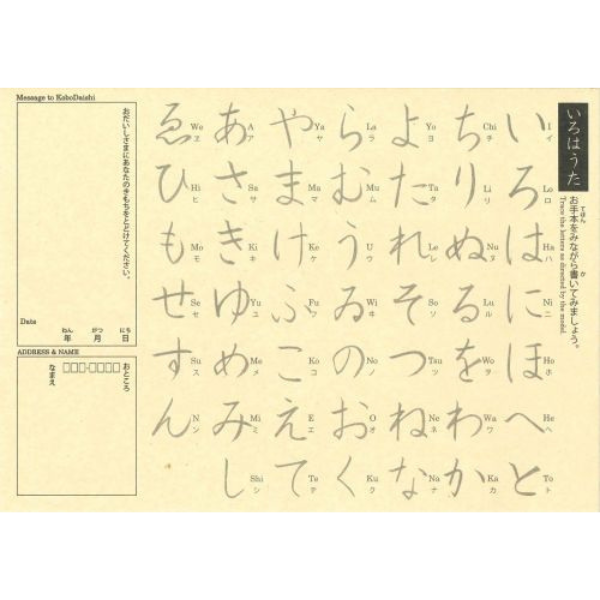 いろはうた
お手本をみながら書いてみましょう。
てほん
か
Trace the letters as directed by the model.
い I イ ろ Lo ロ は Ha ハ に Ni ニ ほ Ho ホ へ He ヘ と To ト
ち Chi チ り Li リ ぬ Nu ヌ る Lu ル を Wo ヲ わ Wa ワ か Ka カ
よ Yo ヨ た Ta タ れ Le レ そ So ソ つ Tsu ツ ね Ne ネ な Na ナ
ら La ラ む Mu ム う U ウ ゐ Wi ヰ の No ノ お O オ く Ku ク
や Ya ヤ ま Ma マ け Ke ケ ふ Fu フ こ Ko コ え E エ て Te テ
あ A ア さ Sa サ き Ki キ ゆ Yu ユ め Me メ み Mi ミ し Shi シ
ゑ We ヱ ひ Hi ヒ も Mo モ せ Se セ す Su ス ん N ン
Message to KoboDaishi
おだいしさまにあなたのきもちをとどけてください。
Date
ねん がつ にち
年 月 日
ADDRESS & NAME
おところ
なまえ